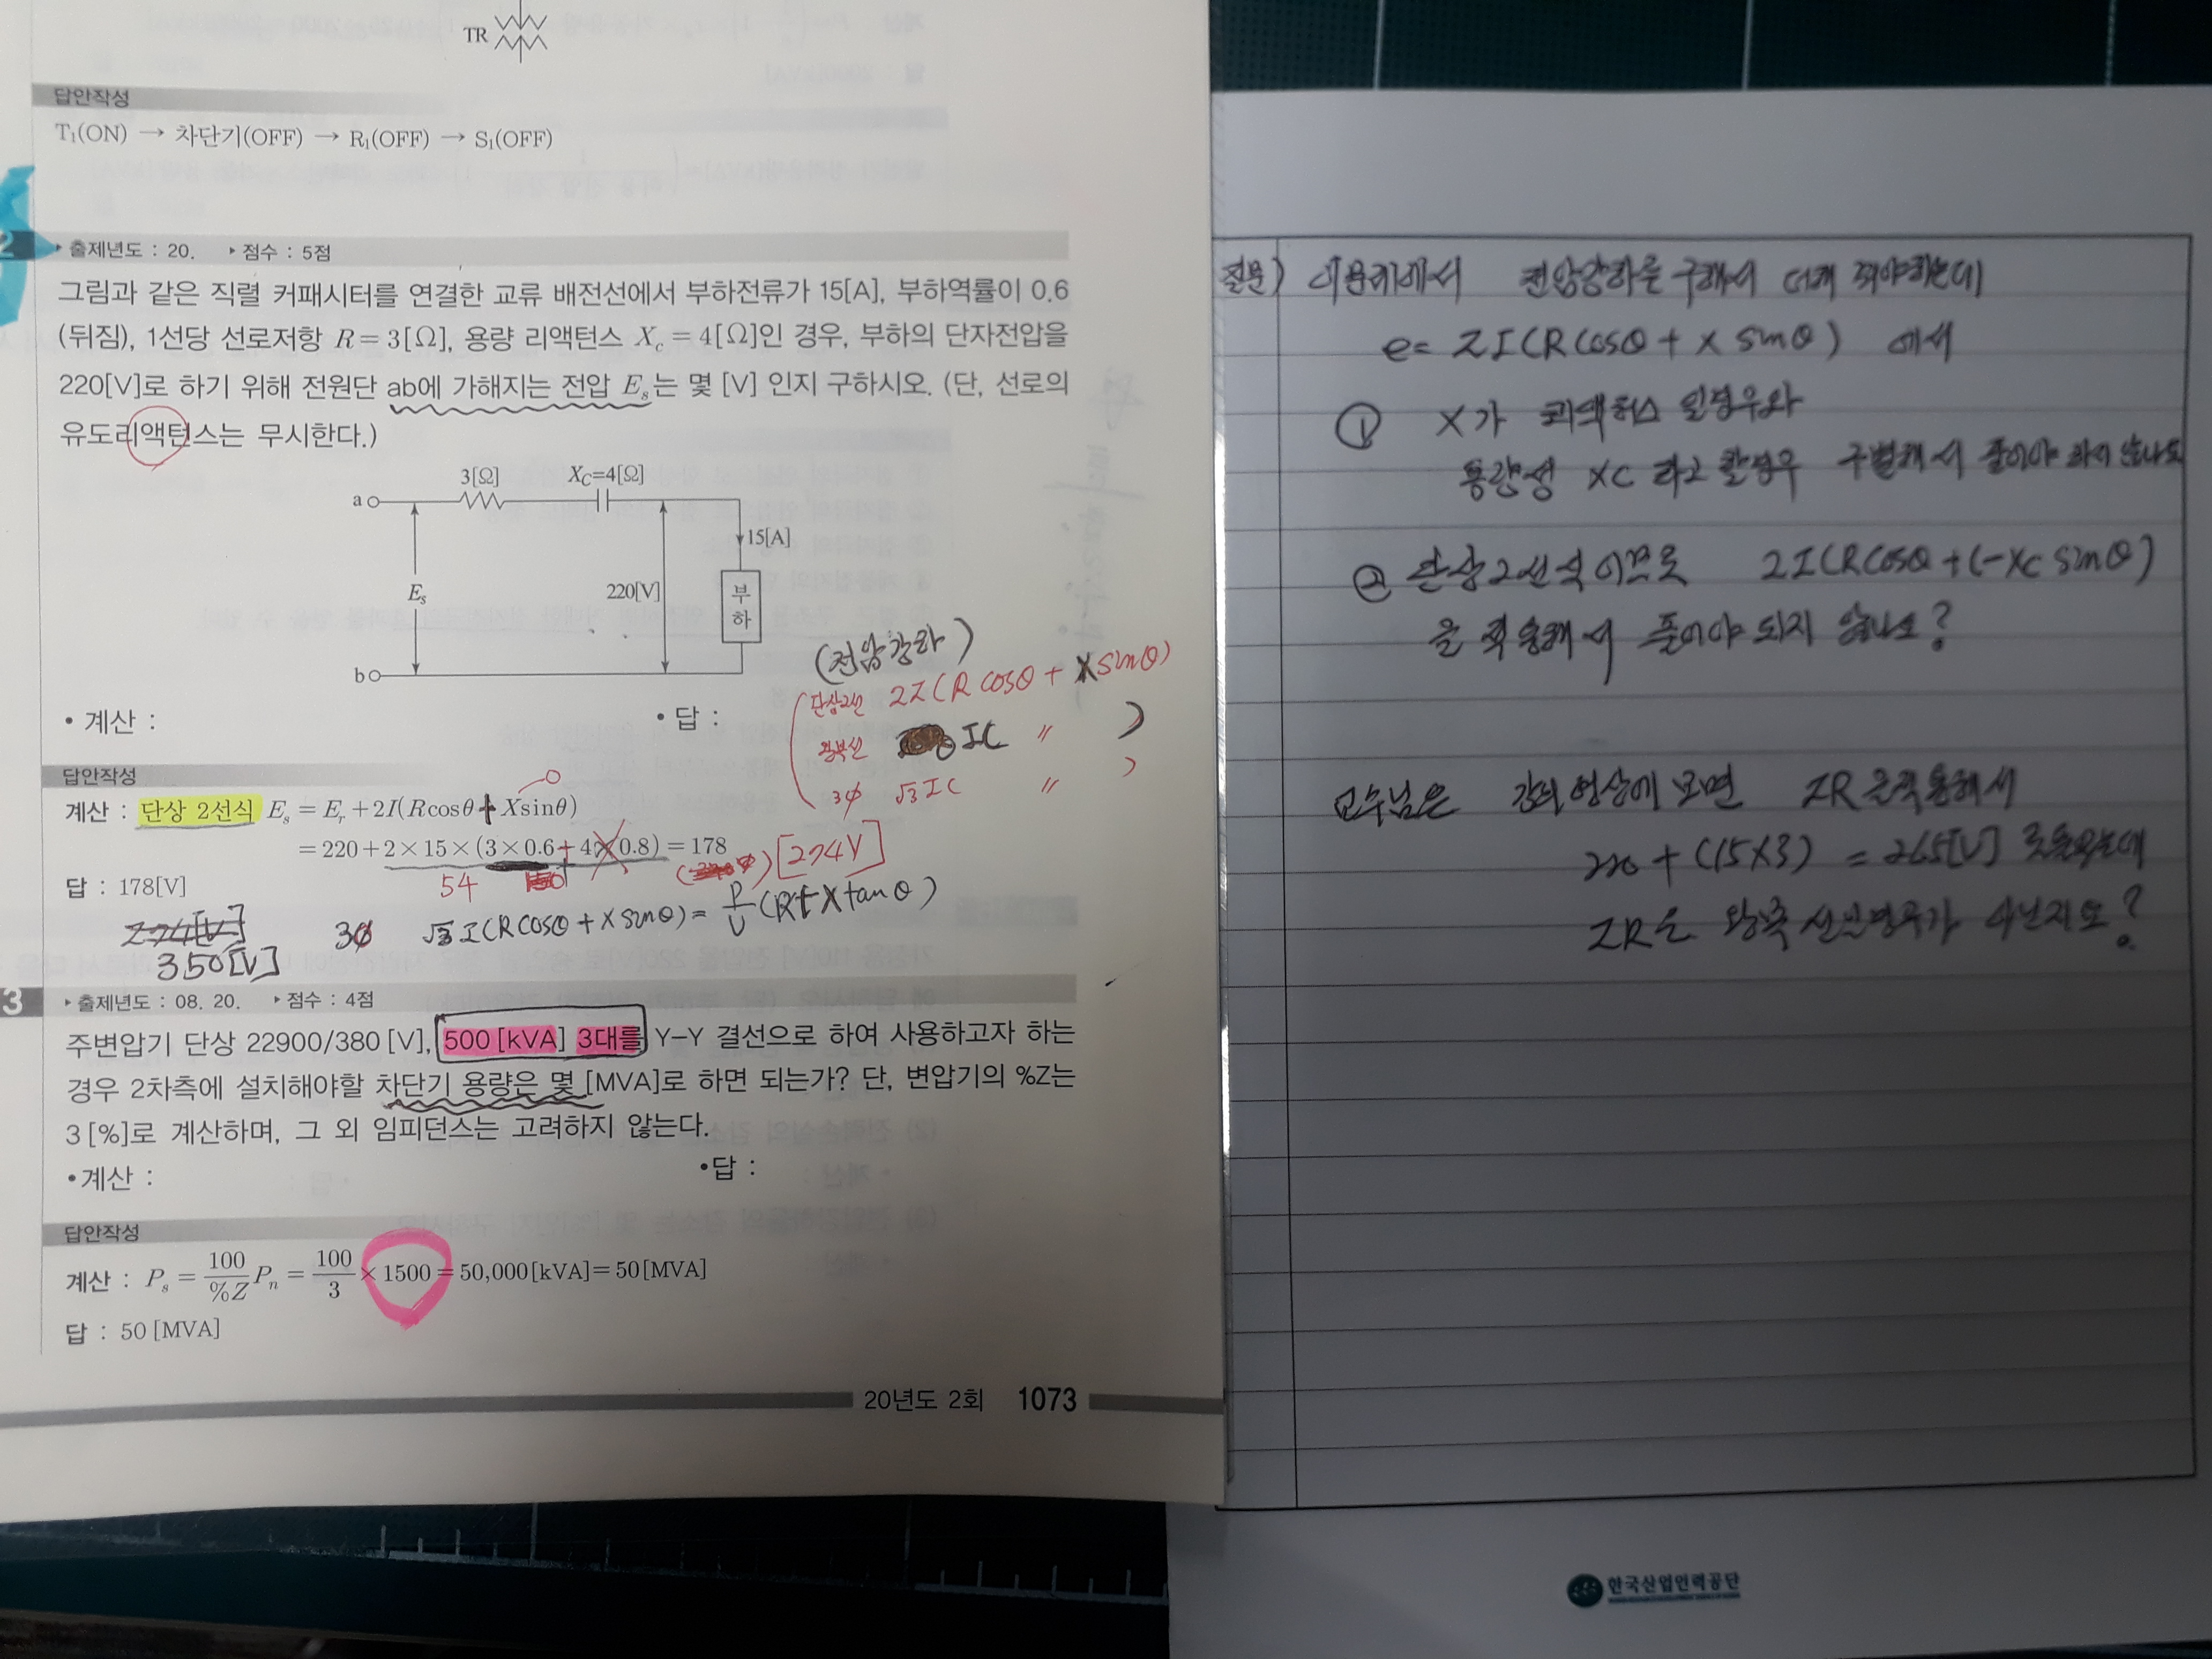 TR
답안작성
T₁(ON) → 차단기(OFF) → R₁(OFF) → S₁(OFF)
2
▸ 출제년도 : 20. ▸ 점수 : 5점
그림과 같은 직렬 커패시터를 연결한 교류 배전선에서 부하전류가 15[A], 부하역률이 0.6
(뒤짐), 1선당 선로저항 R=3[Ω], 용량 리액턴스 X_c=4[Ω]인 경우, 부하의 단자전압을
220[V]로 하기 위해 전원단 ab에 가해지는 전압 E_s는 몇 [V] 인지 구하시오. (단, 선로의
유도리액턴스는 무시한다.)
3[Ω] X_C=4[Ω]
a
15[A]
E_s 220[V] 부하
b
(전압강하)
단상2선 2I(R cosθ + X sinθ)
I( 〃 )
3φ √3 I( 〃 )
• 계산 : • 답 :
답안작성
계산 : 단상 2선식 E_s = E_r + 2I(Rcosθ + Xsinθ)
0
= 220+2×15×(3×0.6+4×0.8) = 178
54 [274V]
답 : 178[V]
274[V]
350[V]
3φ √3 I(R cosθ + X sinθ) = P/V (R+X tanθ)
3
▸ 출제년도 : 08. 20. ▸ 점수 : 4점
주변압기 단상 22900/380 [V], 500 [kVA] 3대를 Y-Y 결선으로 하여 사용하고자 하는
경우 2차측에 설치해야할 차단기 용량은 몇 [MVA]로 하면 되는가? 단, 변압기의 %Z는
3 [%]로 계산하며, 그 외 임피던스는 고려하지 않는다.
• 계산 : • 답 :
답안작성
계산 : P_s = 100/%Z P_n = 100/3 × 1500 = 50,000[kVA] = 50[MVA]
답 : 50 [MVA]
20년도 2회 1073
질문) 이문제에서 전압강하를 구해서 더해 줘야하는데
e= 2I(R cosθ + X sinθ) 에서
① X가 리액턴스 일경우와
용량성 XC 라고 할경우 구별해서 풀어야 하지 않나요
② 단상2선식 이므로 2I(R cosθ + (-Xc sinθ)
을 적용해서 풀어야 되지 않나요?
교수님은 강의 영상에 보면 IR 을적용해서
220 + (15×3) = 265[V] 로
IR은 아닌지요?
한국산업인력공단